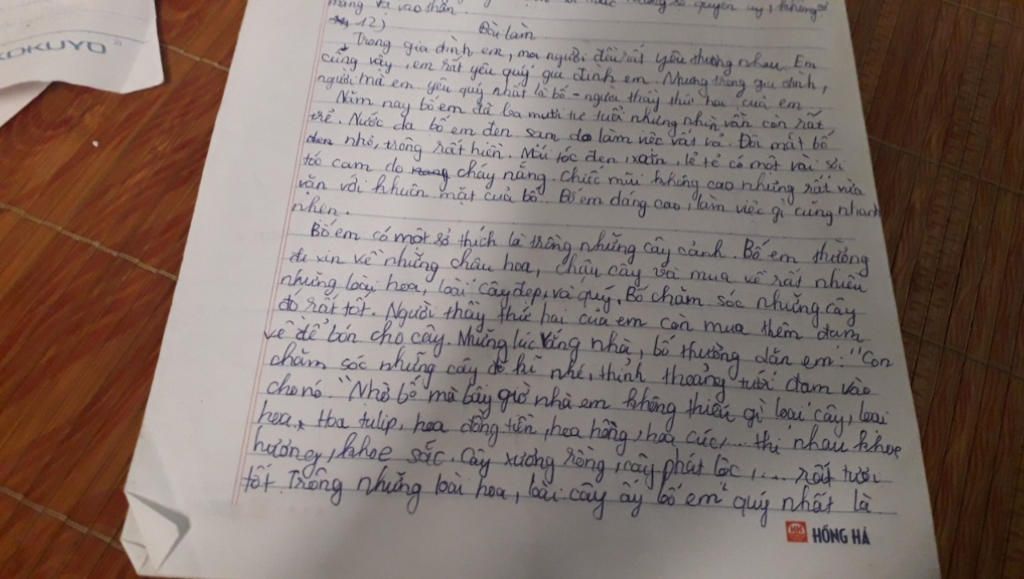 KOKUYO
mang và vào thăn.
quyền uy, không
12) Bài làm
Trong gia đình em, mọi người đều rất yêu thương nhau. Em
cũng vậy, em rất yêu quý gia đình em. Nhưng trong gia đình,
người mà em yêu quý nhất là bố - người thầy thứ hai của em
Năm nay bố em đã ba mươi tư tuổi nhưng nhìn vẫn còn rất
trẻ. Nước da bố em đen sạm do làm việc vất vả. Đôi mắt bố
đen nhỏ, trông rất hiền. Mái tóc đen, xoăn, lẻ tẻ có một vài sợi
tóc cam do cháy nắng. Chiếc mũi không cao nhưng rất vừa
vặn với khuôn mặt của bố. Bố em dáng cao, làm việc gì cũng nhanh
nhẹn.
Bố em có một sở thích là trồng những cây cảnh. Bố em thường
đi xin về những chậu hoa, chậu cây và mua về rất nhiều
những loài hoa, loài cây đẹp, và quý. Bố chăm sóc những cây
đó rất tốt. Người thầy thứ hai của em còn mua thêm đạm
về để bón cho cây. Những lúc vắng nhà, bố thường dặn em: "Con
chăm sóc những cây đó kĩ nhé, thỉnh thoảng tưới đạm vào
cho nó." Nhờ bố mà bây giờ nhà em không thiếu gì loại cây, loại
hoa. Hoa tulip, hoa đồng tiền, hoa hồng, hoa cúc,... thi nhau khoe
hương, khoe sắc. Cây xương rồng, cây phát lộc,.... rất tươi
tốt. Trong những loài hoa, loài cây ấy bố em quý nhất là
HỒNG HÀ